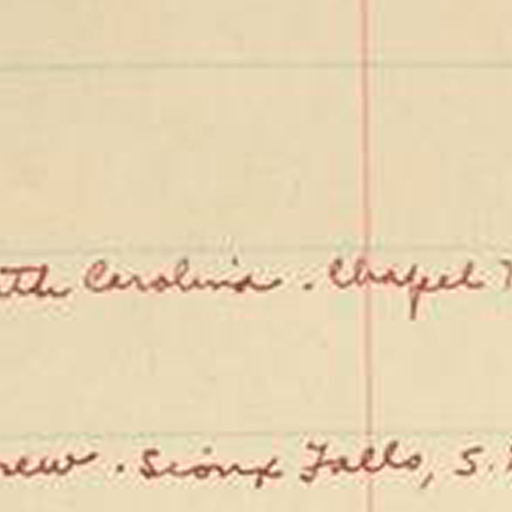 th Carolina. Chapel
rew. Sioux Falls, S.